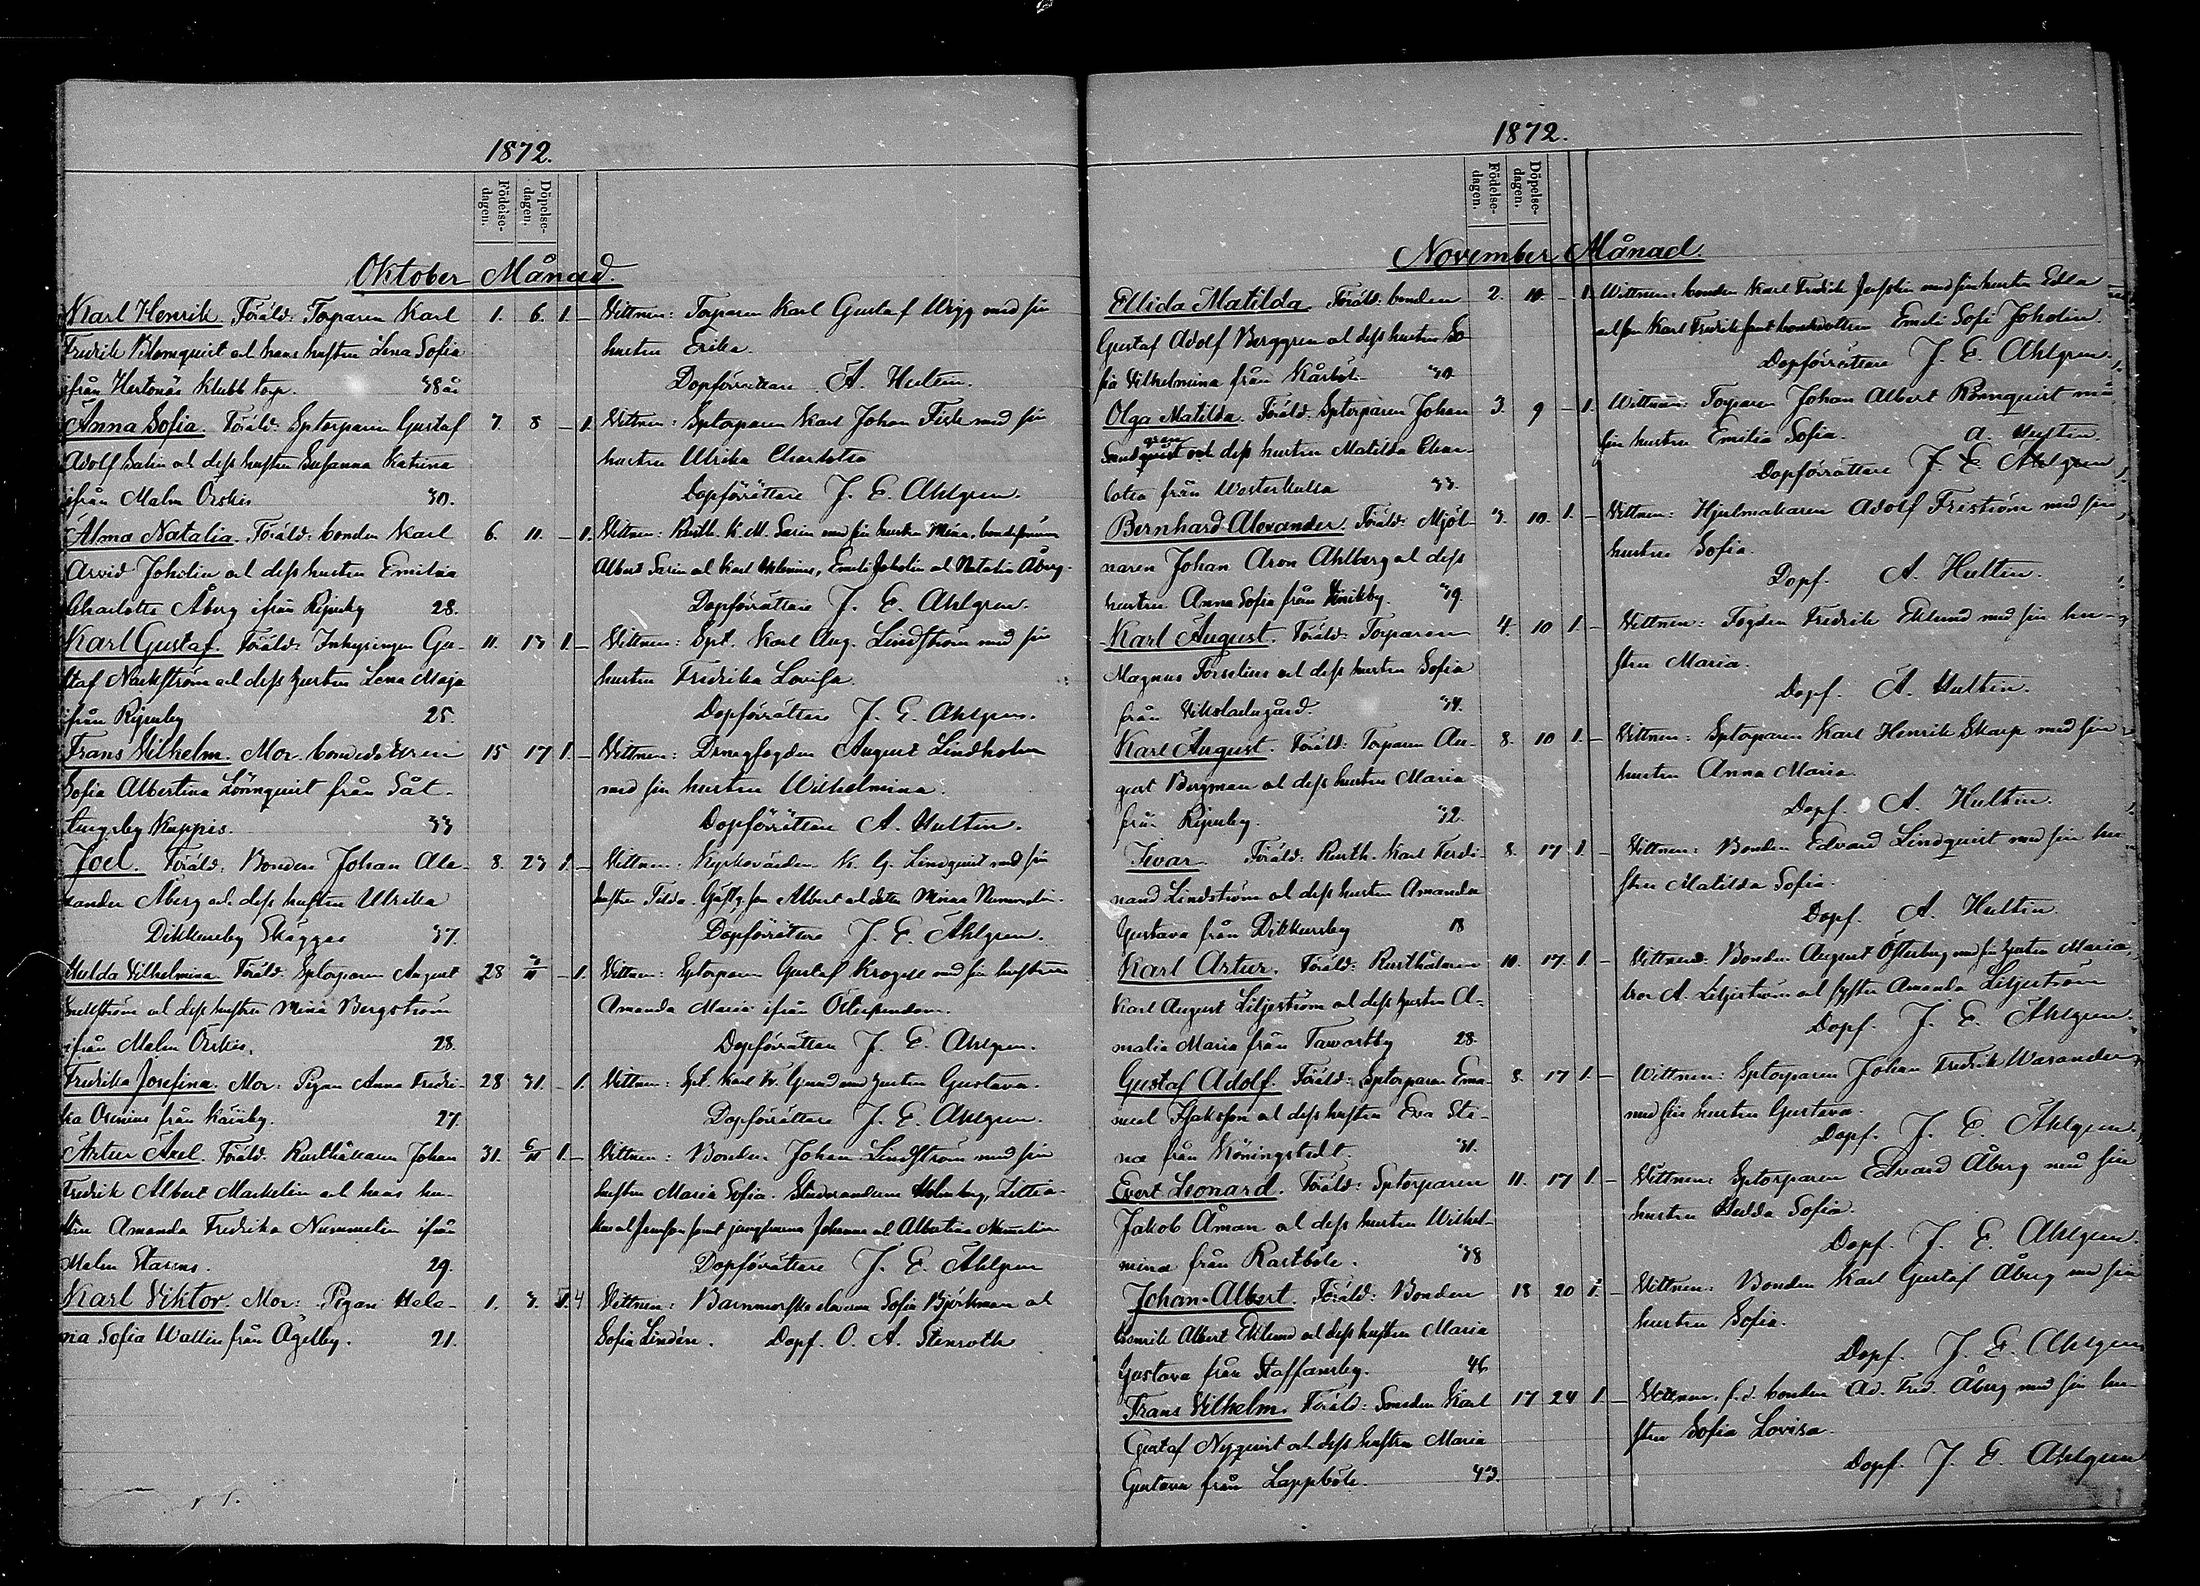 1872.
Födelse-
dagen.
Döpelse-
dagen.
Oktober Månad.
Karl Henrik. Föräld: Torparen Karl 1. 6. 1. — Vittnen: Torparen Karl Gustaf Wigg med sin
Fredrik Blomquist och hans hustru Lena Sofia hustru Erika.
ifrån Hertonäs Klubb torp. 38 år Dopförrättare A. Hultin.
Anna Sofia. Föräld: Sptorparen Gustaf 7. 8 — 1. Vittnen: Sptorparen Karl Johan Fisk med sin
Adolf Salin och dess hustru Susanna Katrina hustru Ulrika Charlotta
ifrån Malm Orskis 30. Dopförrättare J. E. Ahlgren.
Alma Natalia. Föräld: bonden Karl 6. 11. — 1. Vittnen: Rusth. K. M. Sarin med sin hustru Mina, bondesönerna
Arvid Joholin och dess hustru Emilia Albert Sarin och Karl Helenius, Emili Joholin och Natalia Åberg.
Charlotta Åberg ifrån Ripuby 28. Dopförrättare J. E. Ahlgren.
Karl Gustaf. Föräld: Inhysingen Gu- 11. 13 1. — Vittnen: Spt. Karl Aug. Lindström med sin
staf Nackström och dess hustru Lena Maja hustru Fredrika Lovisa.
ifrån Ripuby 25. Dopförrättare J. E. Ahlgren.
Frans Vilhelm. Mor. bondedottren 15 17 1. — Vittnen: Drengfogden August Lindholm
Sofia Albertina Lönnquist från Såt- med sin hustru Wilhelmina.
tungsby Kuppis. 33 Dopförrättare A. Hultin.
Joel. Föräld: Bonden Johan Ale- 8. 23 1. — Vittnen: Kyrkovärden K. G. Lindquist med sin
xander Åberg och dess hustru Ulrika hustru Tilda. Gästg. son Albert och dotter Minna Nummelin.
Dikkursby Skäggas 37. Dopförrättare J. E. Ahlgren.
Hulda Vilhelmina. Föräld: Sptorparen August 28 3/11 — 1. Vittnen: Sptorparen Gustaf Krogell med sin hustru
hustru Mina Bergström Amanda Maria ifrån
ifrån Malm Orskis. 28. Dopförrättare J. E. Ahlgren.
Fredrika Josefina. Mor: Pigan Anna Fredri- 28 31. — 1. Vittnen: Spt. Karl Gust. hustru Gustava.
ka Orenius från 27. Dopförrättare J. E. Ahlgren.
Artur Axel. Föräld: Rusthållaren Johan 31. 6/11 1. — Vittnen: Bonden Johan Lindström med sin
Fredrik Albert Mackelin och hans hu- hustru Maria Sofia. Studerandena Holmberg,
stru Amanda Fredrika Nummelin ifrån samt jungfrurna Johanna och Albertina Nummelin
Malm Starens. 29. Dopförrättare J. E. Ahlgren
Karl Viktor. Mor: Pigan Hele- 1. 3. 1. 4 Vittnen: Barnmorske eleverna Sofia Björkman och
na Sofia Wallin från Ågelby. 21. Sofia Lindén. Dopf. O. A. Stenroth
1872.
Födelse-
dagen.
Döpelse-
dagen.
November Månad.
Ellida Matilda. Föräld: bonden 2. 10. — 1. Wittnen: bonden Karl Fredrik Joholin med sin hustru Edla
Gustaf Adolf Berggren och dess hustru So- och son Karl Fredrik samt bondedottren Emeli Sofi Joholin
fia Vilhelmina från Kårböle 30 Dopförrättare J. E. Ahlgren.
Olga Matilda. Föräld: Sptorparen Johan 3. 9 — 1. Wittnen: Torparen Johan Albert Rönnquist med
Sandquist gren och dess hustru Matilda Char- sin hustru Emilia Sofia. A. Hultin
lotta från Westerkulla 33. Dopförrättare J. E. Ahlgren
Bernhard Alexander. Föräld: Mjöl- 3. 10. 1. — Vittnen: Hjulmakaren Adolf Friström med sin
naren Johan Aron Ahlberg och dess hustru Sofia.
hustru Anna Sofia från Henrikby. 39 Dopf. A. Hultin.
Karl August. Föräld: Torparen 4. 10 1. — Vittnen: Fogden Fredrik Eklund med sin hu-
Magnus Forselius och dess hustru Sofia stru Maria.
från 34. Dopf. A. Hultin.
Karl August. Föräld: Torparen Au- 8. 10 1. — Vittnen: Sptorparen Karl Henrik Skarp med sin
gust Bergman och dess hustru Maria hustru Anna Maria.
från Ripuby. 32. Dopf. A. Hultin.
Ivar. Föräld: Rusth. Karl Ferdi- 8. 17 1. — Vittnen: Bonden Edvard Lindquist med sin hu-
nand Lindström och dess hustru Amanda stru Matilda Sofia.
Gustava från Dikkursby 18 Dopf. A. Hultin.
Karl Artur. Föräld: Rusthållaren 10. 17. 1. — Vittnen: Bonden August Österberg med sin hustru Maria,
Karl August Liljeström och dess hustru A- bror A. Liljeström och syster Amanda Liljeström
malia Maria från Tavastby 28 Dopf. J. E. Ahlgren.
Gustaf Adolf. Föräld: Sptorparen Ema- 8. 17 1. — Wittnen: Sptorparen Johan Fredrik Warander
nuel Isaksson och dess hustru Eva Sti- med sin hustru Gustava.
na från Köningstedt. 31. Dopf. J. E. Ahlgren.
Evert Leonard. Föräld: Sptorparen 11. 17 1. — Vittnen: Sptorparen Edvard Åberg med sin
Jakob Åman och dess hustru Wilhel- hustru Hedda Sofia.
mina från Rastböle. 38 Dopf. J. E. Ahlgren.
Johan Albert. Föräld: Bonden 18 20 1. — Vittnen: Bonden Karl Gustaf Åberg med sin
Henrik Albert Eklund och dess hustru Maria hustru Sofia.
Gustava från Staffansby. 46 Dopf. J. E. Ahlgren
Frans Vilhelm. Föräld: Smeden Karl 17 24 1. — Vittnen: f. d. bonden Ad. Fred. Åberg med sin hu-
Gustaf Nyquist och dess hustru Maria stru Sofia Lovisa.
Gustava från Lappböle. 43. Dopf. J. E. Ahlgren